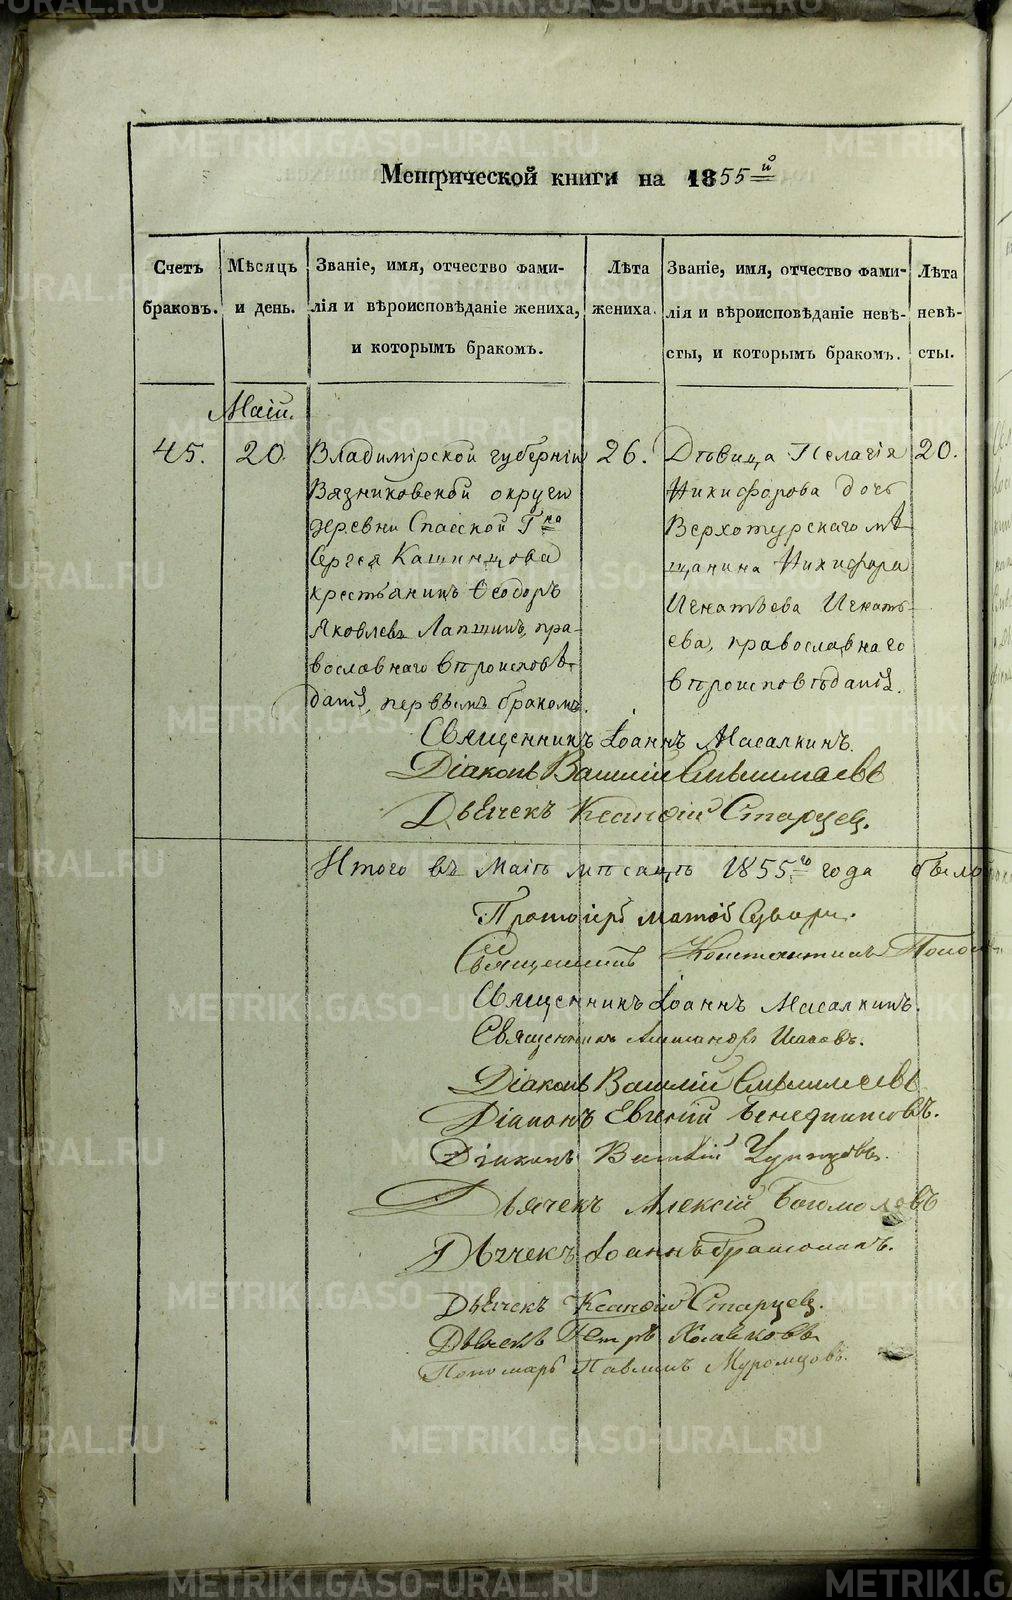 Метрической книги на 1855й
Счетъ браковъ.
Мѣсяцъ и день.
Званіе, имя, отчество фами-
лія и вѣроисповѣданіе жениха,
и которымъ бракомъ.
Лѣта жениха.
Званіе, имя, отчество фами-
лія и вѣроисповѣданіе невѣ-
сты, и которымъ бракомъ.
Лѣта невѣ-
сты.
Маій.
45.
20.
Владимірской губерніи
Вязниковской округи
деревни Спасской Гна
Сергея Кашинцова
крестьянинъ Ѳеодоръ
Яковлевъ Лапшинъ, пра-
вославнаго вѣроисповѣ-
данія, первымъ бракомъ.
26.
Дѣвица Пелагія
Никифорова дочь
Верхотурскаго мѣ-
щанина Никифора
Игнатьева Игнать-
ева, православнаго
вѣроисповѣданія.
20.
Священникъ Іоаннъ Масалкинъ.
Діаконъ Василій
Дьячекъ Ксанѳій Старцев.
Итого въ Маіѣ мѣсяцѣ 1855го года было
Протоіерей
Священникъ Константинъ
Священникъ Іоаннъ Масалкинъ.
Священникъ Александръ
Діаконъ Василій
Діаконъ Евгеній Бенедиктовъ.
Діаконъ Василій
Дьячекъ Алексій Богомоловъ
Дьячекъ Іоаннъ
Дьячекъ Ксанѳій Старцев.
Дьячекъ Петръ
Пономарь Павлинъ Муромцовъ.
METRIKI.GASO-URAL.RU